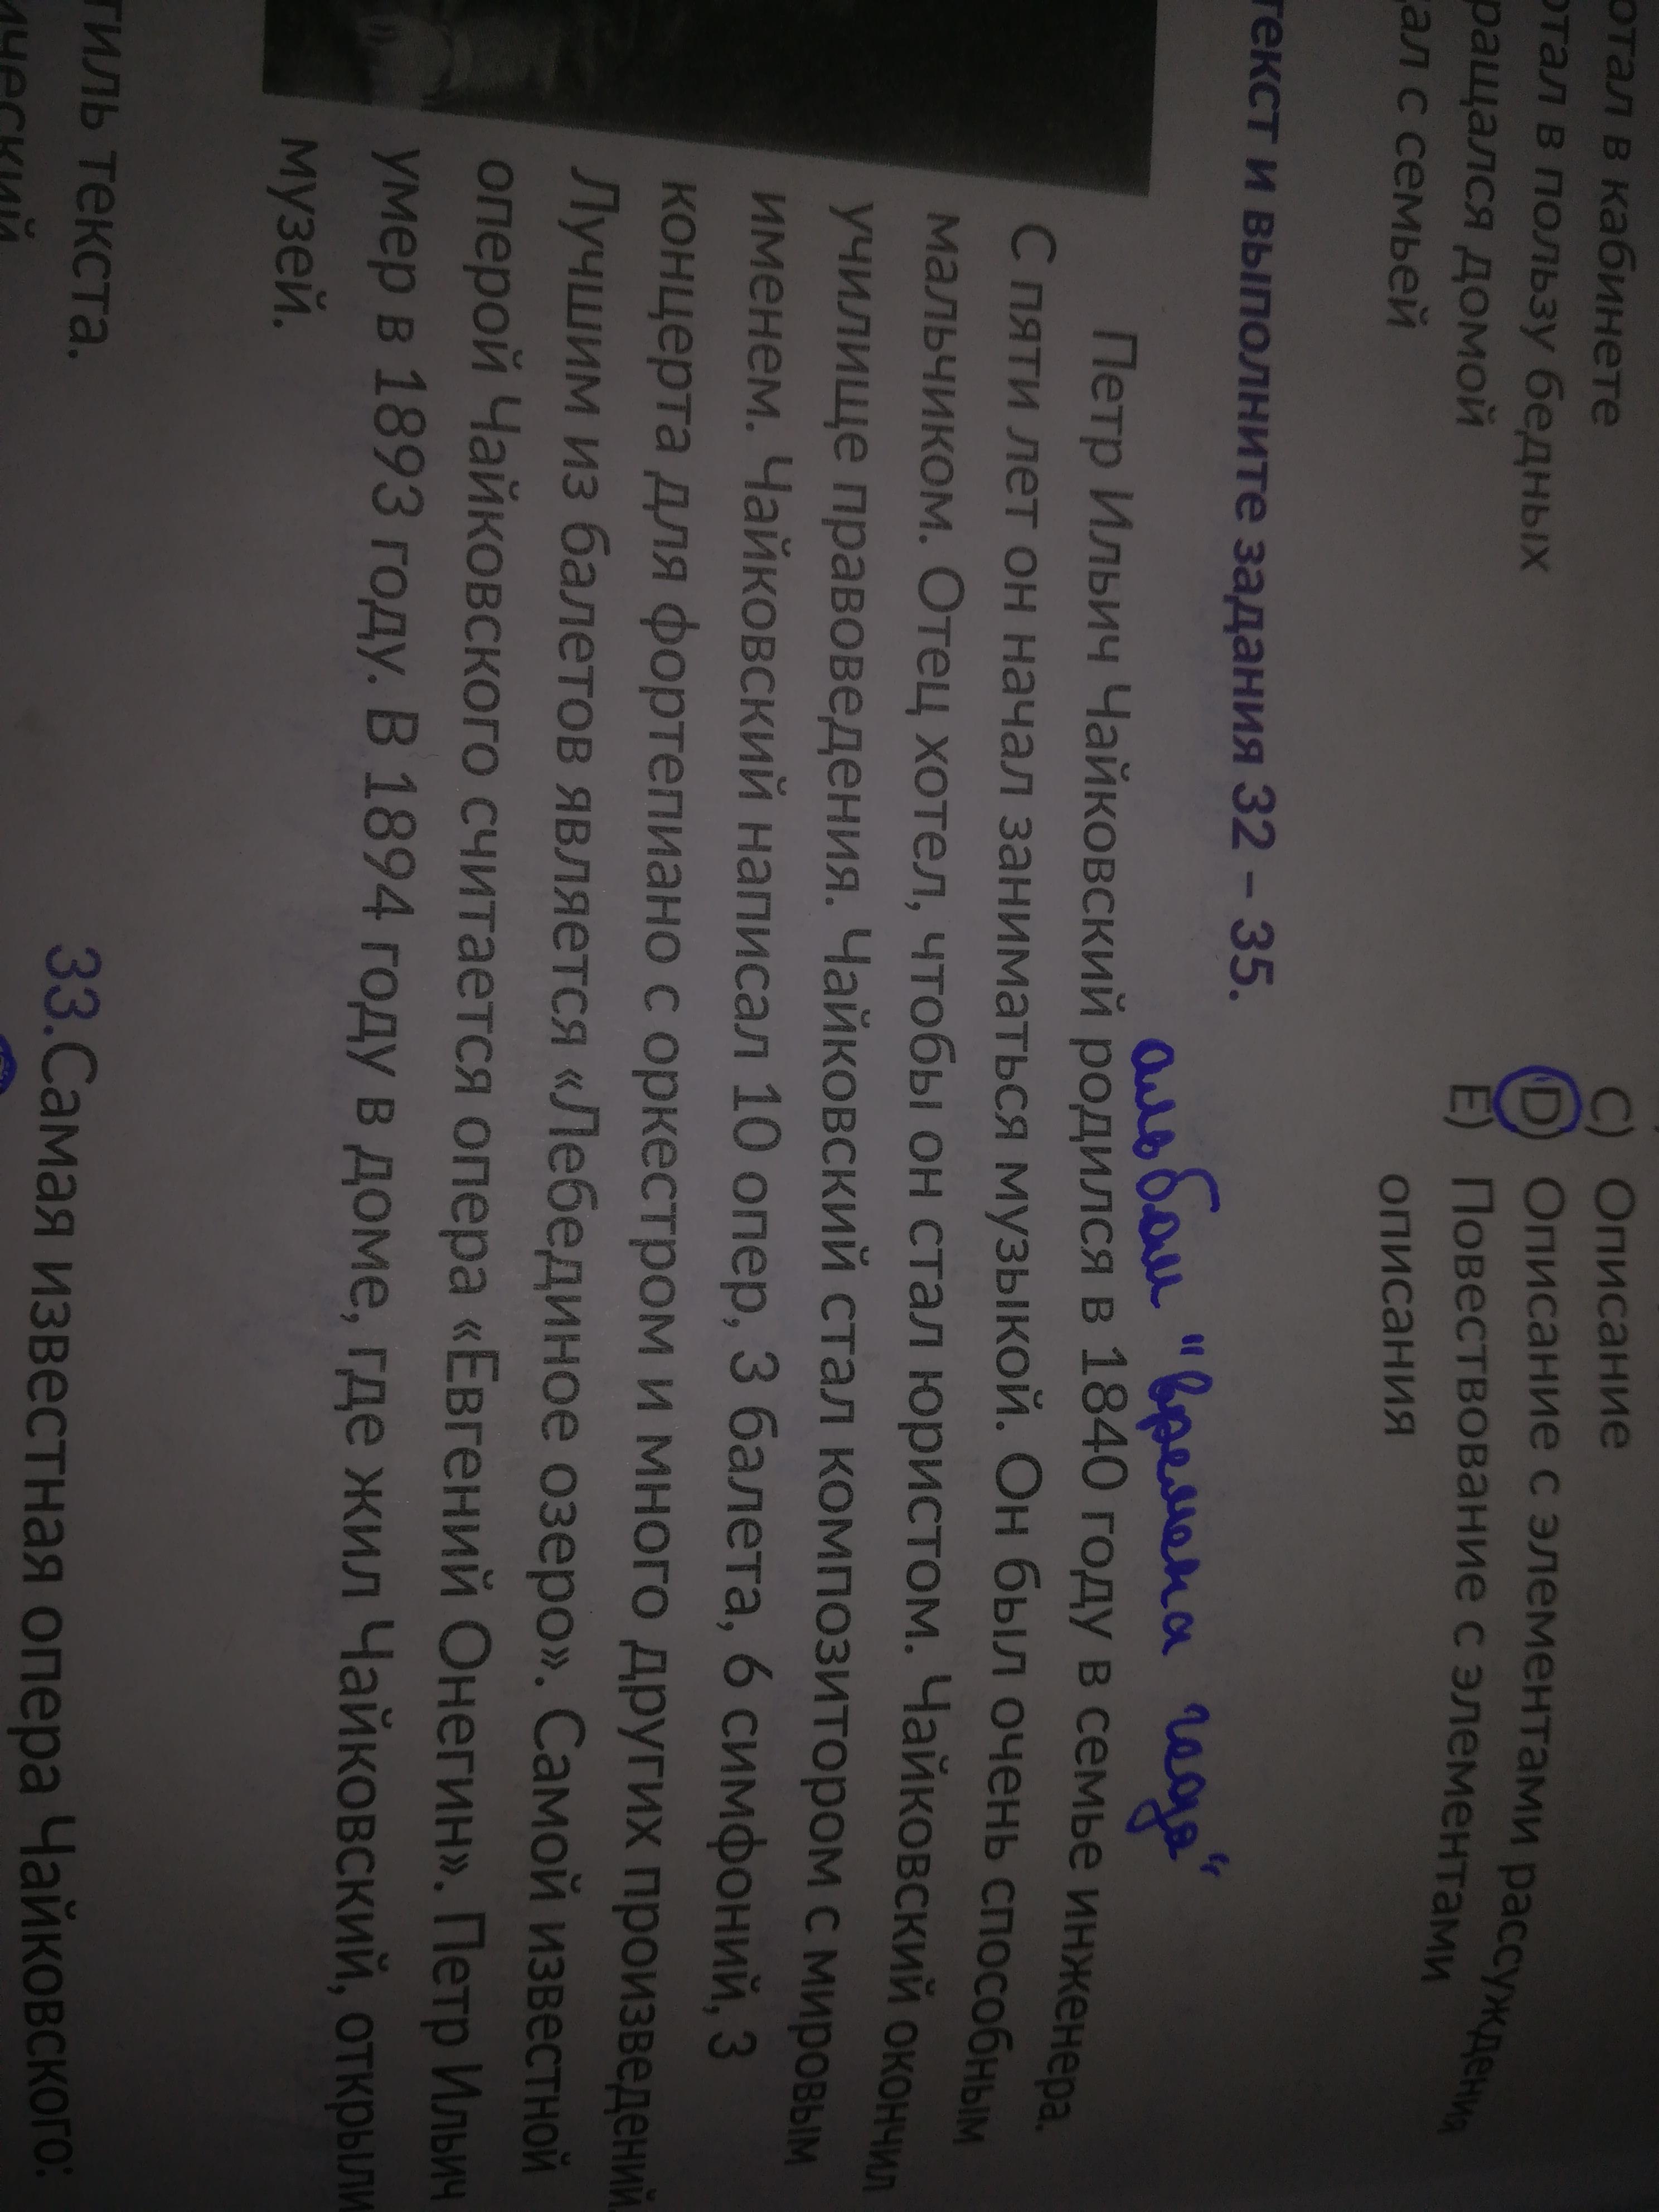 отал в кабинете
отал в пользу бедных
ращался домой
ал с семьей
C) Описание
D) Описание с элементами рассуждения
E) Повествование с элементами
описания
текст и выполните задания 32 – 35.
альбом "времена года"
Петр Ильич Чайковский родился в 1840 году в семье инженера.
С пяти лет он начал заниматься музыкой. Он был очень способным
мальчиком. Отец хотел, чтобы он стал юристом. Чайковский окончил
училище правоведения. Чайковский стал композитором с мировым
именем. Чайковский написал 10 опер, 3 балета, 6 симфоний, 3
концерта для фортепиано с оркестром и много других произведений
Лучшим из балетов является «Лебединое озеро». Самой известной
оперой Чайковского считается опера «Евгений Онегин». Петр Ильич
умер в 1893 году. В 1894 году в доме, где жил Чайковский, открыли
музей.
тиль текста.
ический
33.Самая известная опера Чайковского: